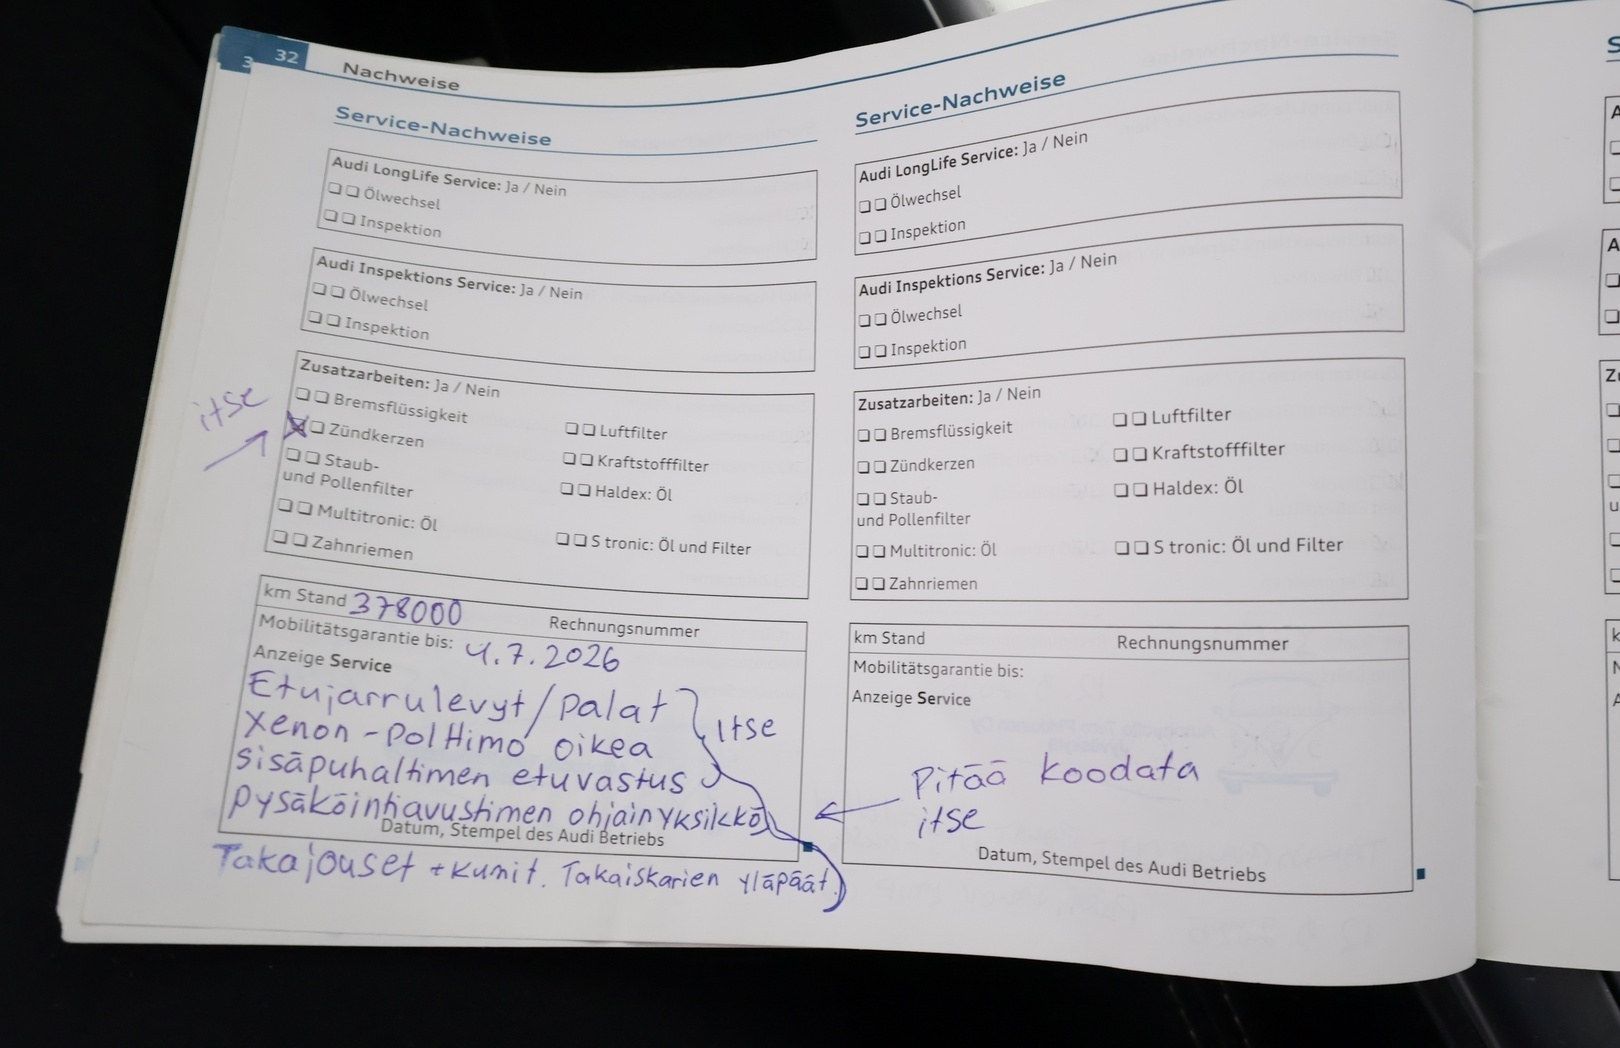 3
32
Nachweise
Service-Nachweise
Audi LongLife Service: Ja / Nein
❏ ❏ Ölwechsel
❏ ❏ Inspektion
Audi Inspektions Service: Ja / Nein
❏ ❏ Ölwechsel
❏ ❏ Inspektion
Zusatzarbeiten: Ja / Nein
❏ ❏ Bremsflüssigkeit
itse
❏ ❏ Zündkerzen
❏ ❏ Staub-
und Pollenfilter
❏ ❏ Multitronic: Öl
❏ ❏ Zahnriemen
❏ ❏ Luftfilter
❏ ❏ Kraftstofffilter
❏ ❏ Haldex: Öl
❏ ❏ S tronic: Öl und Filter
km Stand 378000 Rechnungsnummer
Mobilitätsgarantie bis: 4.7.2026
Anzeige Service
Etujarrulevyt/palat
Xenon-polttimo oikea
itse
sisäpuhaltimen etuvastus
pysäköintiavustimen ohjainyksikkö
Datum, Stempel des Audi Betriebs
Takajouset + kumit. Takaiskarien yläpäät.
Service-Nachweise
Audi LongLife Service: Ja / Nein
❏ ❏ Ölwechsel
❏ ❏ Inspektion
Audi Inspektions Service: Ja / Nein
❏ ❏ Ölwechsel
❏ ❏ Inspektion
Zusatzarbeiten: Ja / Nein
❏ ❏ Bremsflüssigkeit
❏ ❏ Zündkerzen
❏ ❏ Staub-
und Pollenfilter
❏ ❏ Multitronic: Öl
❏ ❏ Zahnriemen
❏ ❏ Luftfilter
❏ ❏ Kraftstofffilter
❏ ❏ Haldex: Öl
❏ ❏ S tronic: Öl und Filter
km Stand Rechnungsnummer
Mobilitätsgarantie bis:
Anzeige Service
Pitää koodata
itse
Datum, Stempel des Audi Betriebs